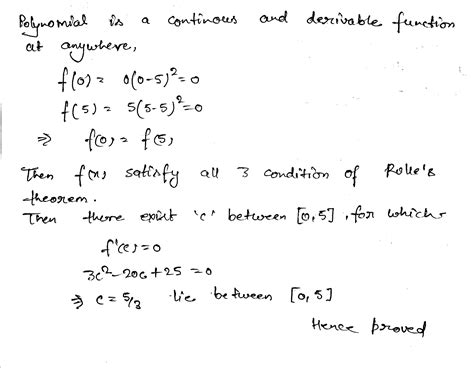 Polynomial is a continous and derivable function
at anywhere,
f(0) = 0(0-5)²=0
f(5) = 5(5-5)²=0
⇒ f(0) = f(5)
Then f(x) satisfy all 3 condition of Rolle's
theorem.
Then there exist 'c' between [0,5], for which
f'(c)=0
3c²-20c+25 =0
⇒ c = 5/3 lie between [0,5]
Hence proved